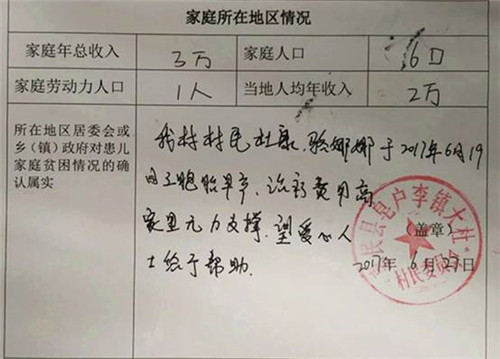 家庭所在地区情况
家庭年总收入 3万 家庭人口 6口
家庭劳动力人口 1人 当地人均年收入 2万
所在地区居委会或
乡（镇）政府对患儿
家庭贫困情况的确
认属实
我村村民杜康、骆娜娜于2017年6月19
日三胞胎早产、治疗费用高
家里无力支撑,望爱心人
士给于帮助.
（盖章）
2017年6月27日
民县皂户李镇大杜
村民委员会